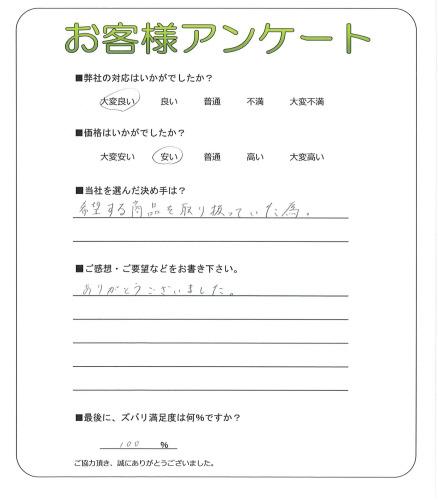 お客様アンケート
■弊社の対応はいかがでしたか？
大変良い 良い 普通 不満 大変不満
■価格はいかがでしたか？
大変安い 安い 普通 高い 大変高い
■当社を選んだ決め手は？
希望する商品を取り扱っていた為。
■ご感想・ご要望などをお書き下さい。
ありがとうございました。
■最後に、ズバリ満足度は何%ですか？
100 %
ご協力頂き、誠にありがとうございました。